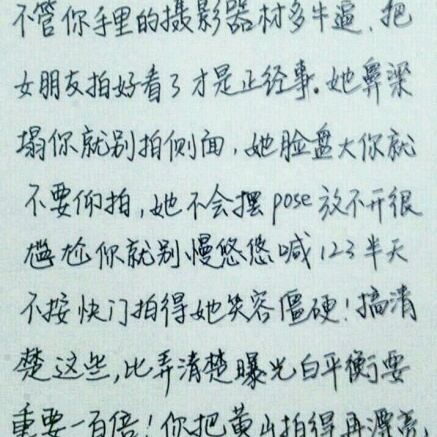 不管你手里的摄影器材多牛逼，把
女朋友拍好看了才是正经事。她鼻梁
塌你就别拍侧面，她脸盘大你就
不要仰拍，她不会摆pose放不开很
尴尬你就别慢悠悠喊123半天
不按快门拍得她笑容僵硬！搞清
楚这些，比弄清楚曝光白平衡要
重要一百倍！你把黄山拍得再漂亮